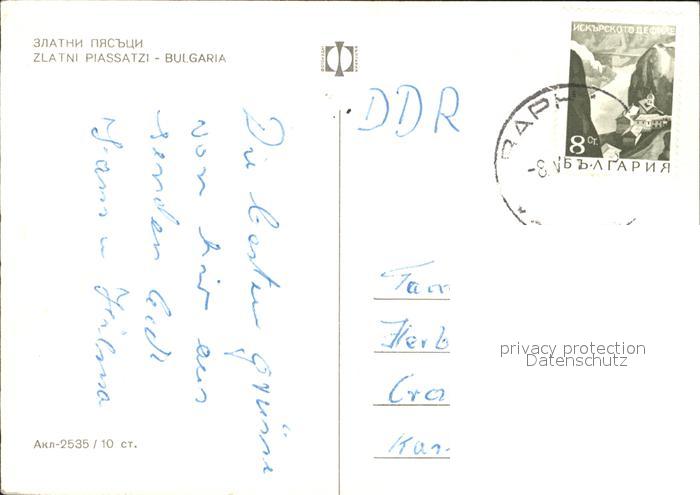 ЗЛАТНИ ПЯСЪЦИ
ZLATNI PIASSATZI - BULGARIA
Die besten Grüsse
von hier aus
senden Euch
Hans u
Акл-2535 / 10 ст.
DDR
ИСКЪРСКОТО ДЕФИЛЕ
8 СТ.
БЪЛГАРИЯ
ВАРН
-8.V
Fam
Herb
Kar
privacy protection
Datenschutz